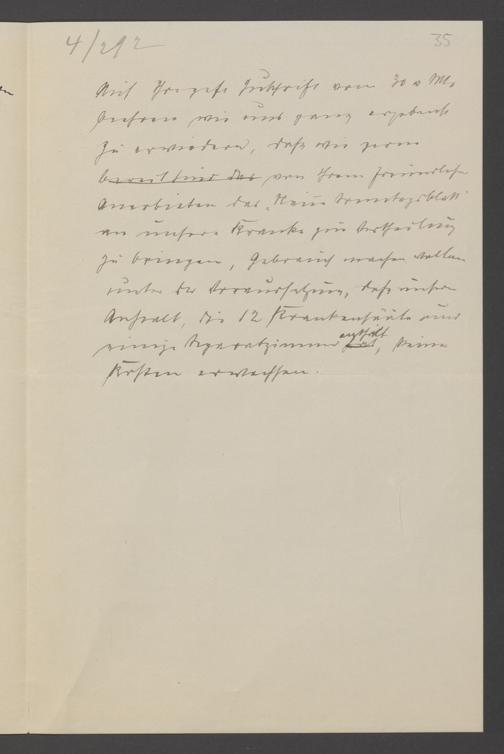 4/292
35
Auf Ihre gefl. Zuschrift vom 30 v. Mts.
beehren wir uns ganz ergebenst
zu erwiedern, daß wir gerne
bereit sind das von Ihrem freundlichen
Anerbieten das "Neue Sonntagsblatt"
an unsere Kranke zur Vertheilung
zu bringen, Gebrauch machen wollen
unter der Voraussetzung, daß unserer
Anstalt, die 12 Krankensääle und
einige Separatzimmer hat enthält, keine
Kosten erwachsen.